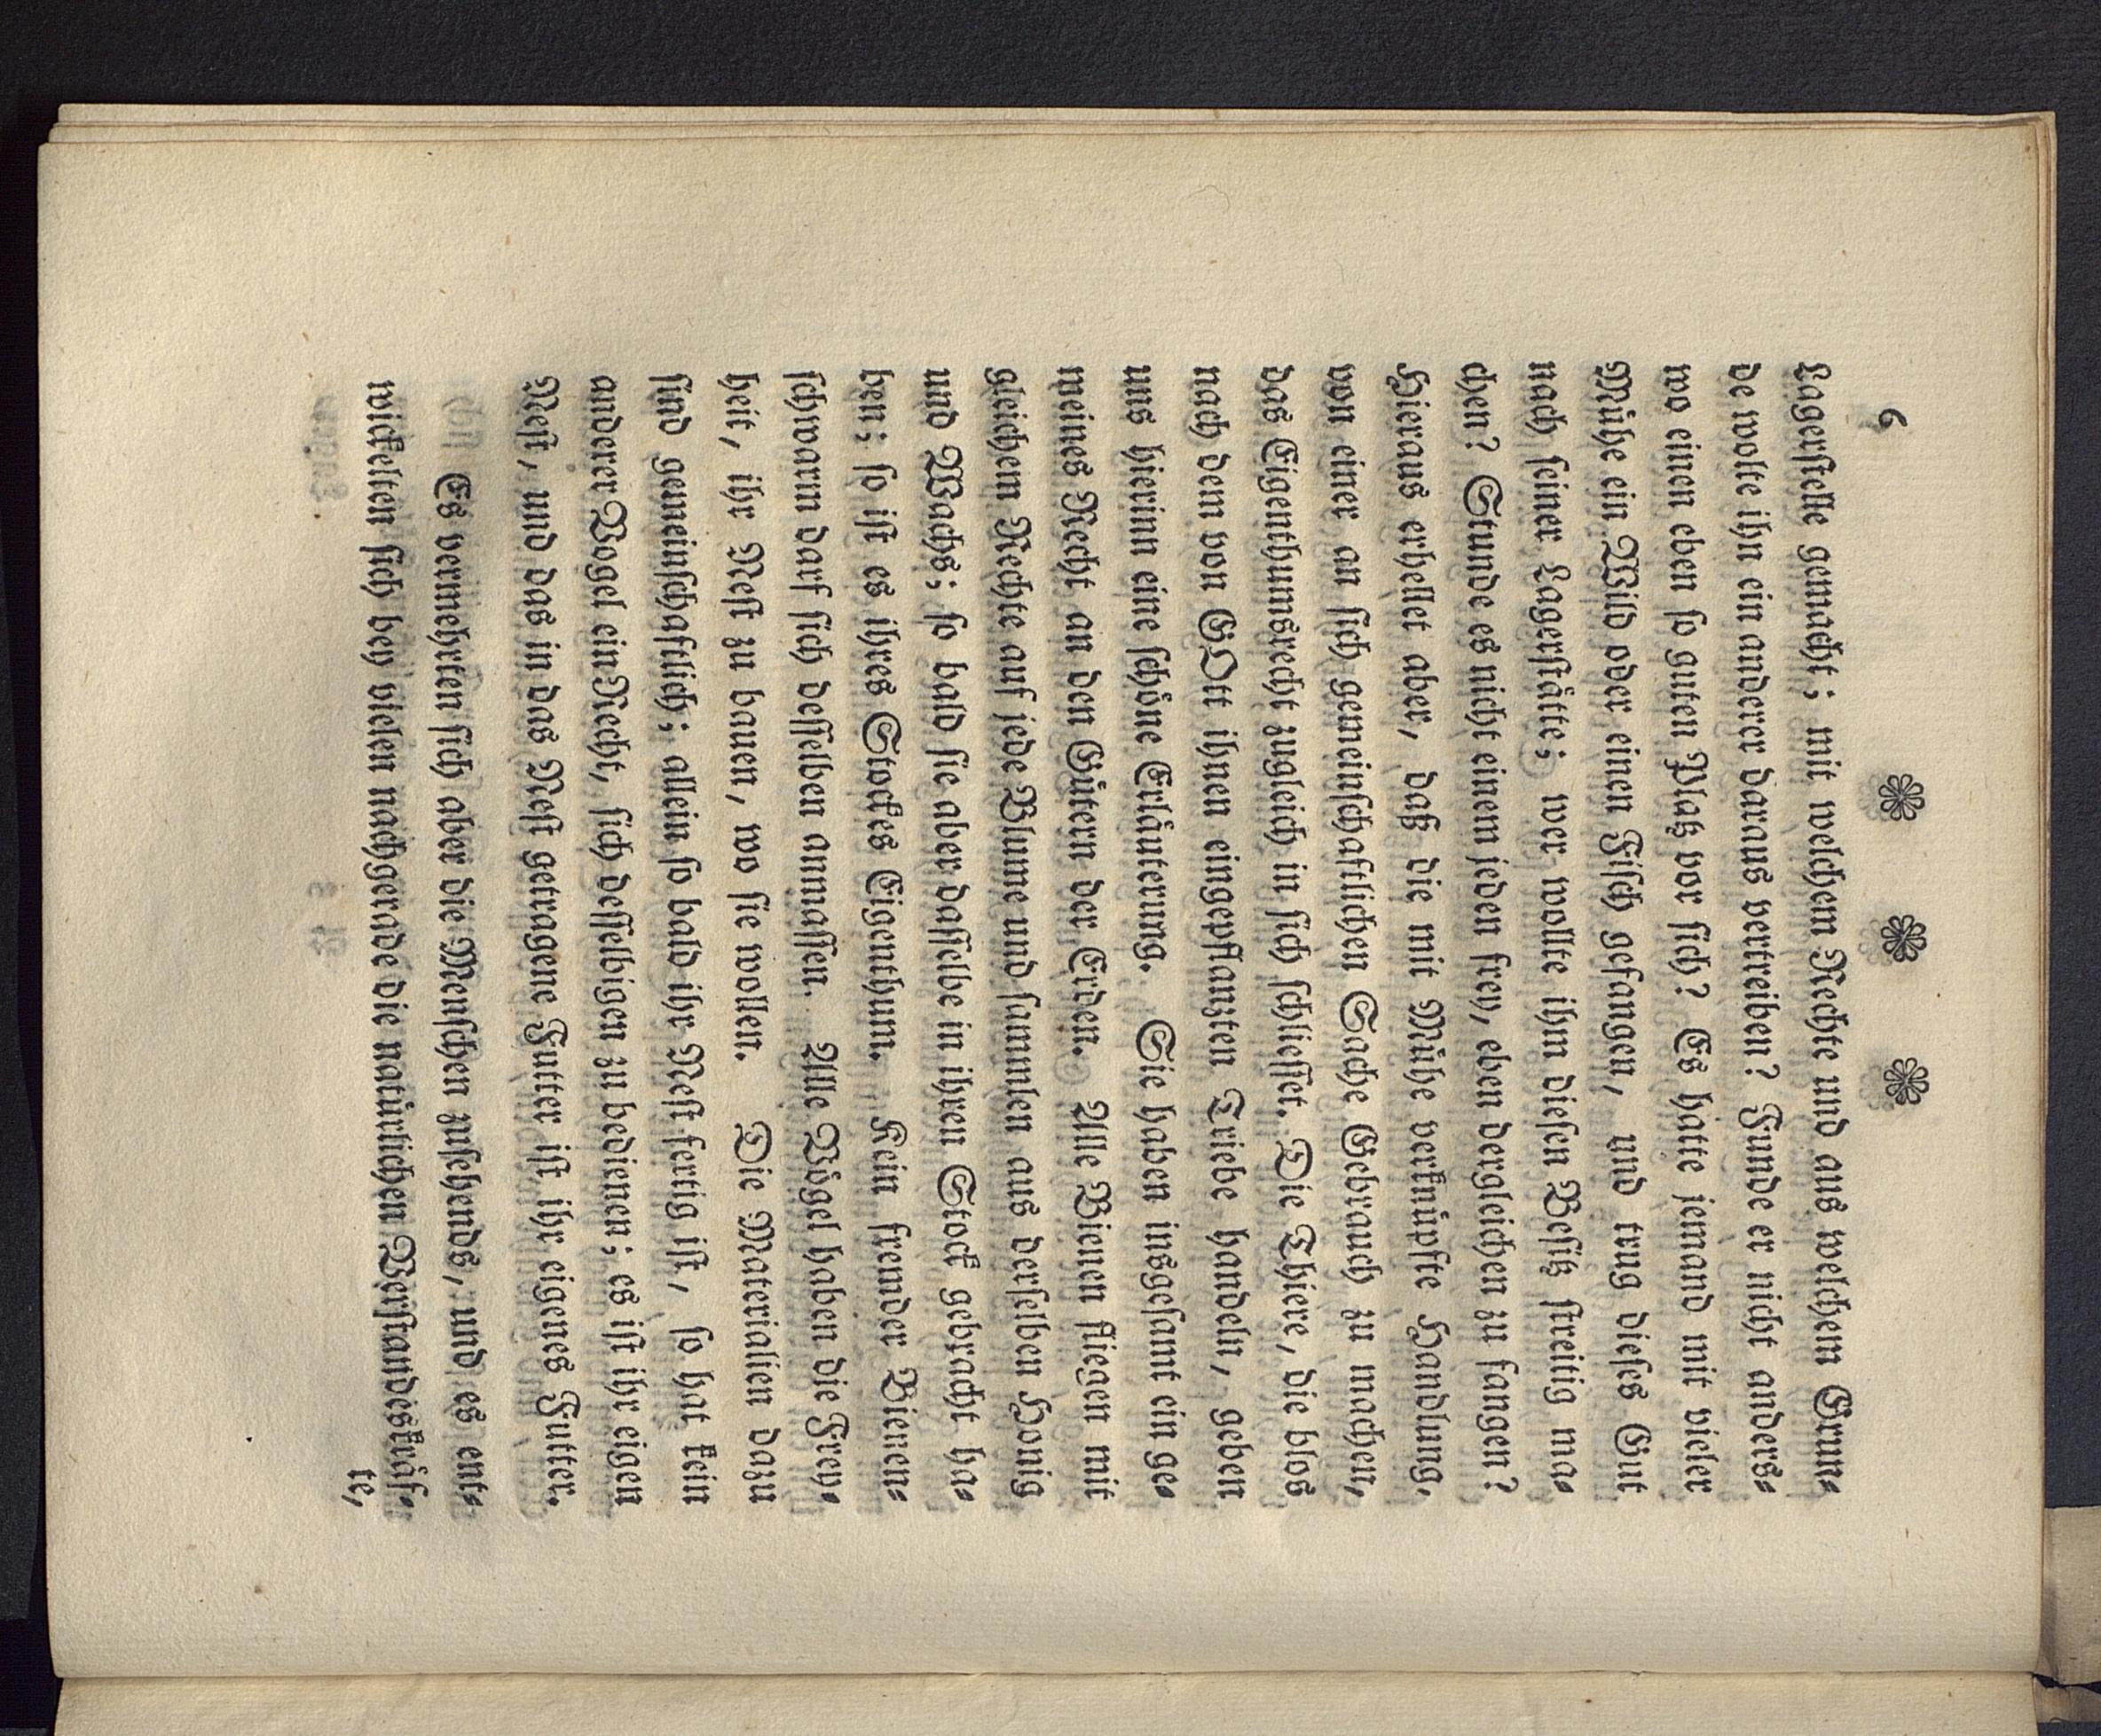 6 ❁ ❁ ❁
Lagerstelle gemacht; mit welchem Rechte und aus welchem Grun⸗
de wolte ihn ein anderer daraus vertreiben? Funde er nicht anders⸗
wo einen eben so guten Platz vor sich? Es hatte jemand mit vieler
Mühe ein Wild oder einen Fisch gefangen, und trug dieses Gut
nach seiner Lagerstätte; wer wollte ihm diesen Besitz streitig ma⸗
chen? Stunde es nicht einem jeden frey, eben dergleichen zu fangen?
Hieraus erhellet aber, daß die mit Mühe verknüpfte Handlung,
von einer an sich gemeinschaftlichen Sache Gebrauch zu machen,
das Eigenthumsrecht zugleich in sich schliesset. Die Thiere, die blos
nach dem von GOtt ihnen eingepflanzten Triebe handeln, geben
uns hierinn eine schöne Erläuterung. Sie haben insgesamt ein ge⸗
meines Recht an den Gütern der Erden. Alle Bienen fliegen mit
gleichem Rechte auf jede Blume und sammlen aus derselben Honig
und Wachs; so bald sie aber dasselbe in ihren Stock gebracht ha⸗
ben; so ist es ihres Stockes Eigenthum. Kein fremder Bienen⸗
schwarm darf sich desselben anmassen. Alle Vögel haben die Frey⸗
heit, ihr Nest zu bauen, wo sie wollen. Die Materialien dazu
sind gemeinschaftlich; allein so bald ihr Nest fertig ist, so hat kein
anderer Vogel ein Recht, sich desselbigen zu bedienen; es ist ihr eigen
Nest, und das in das Nest getragene Futter ist ihr eigenes Futter.
Es vermehrten sich aber die Menschen zusehends, und es ent⸗
wickelten sich bey vielen nachgerade die natürlichen Verstandeskräf⸗
te,